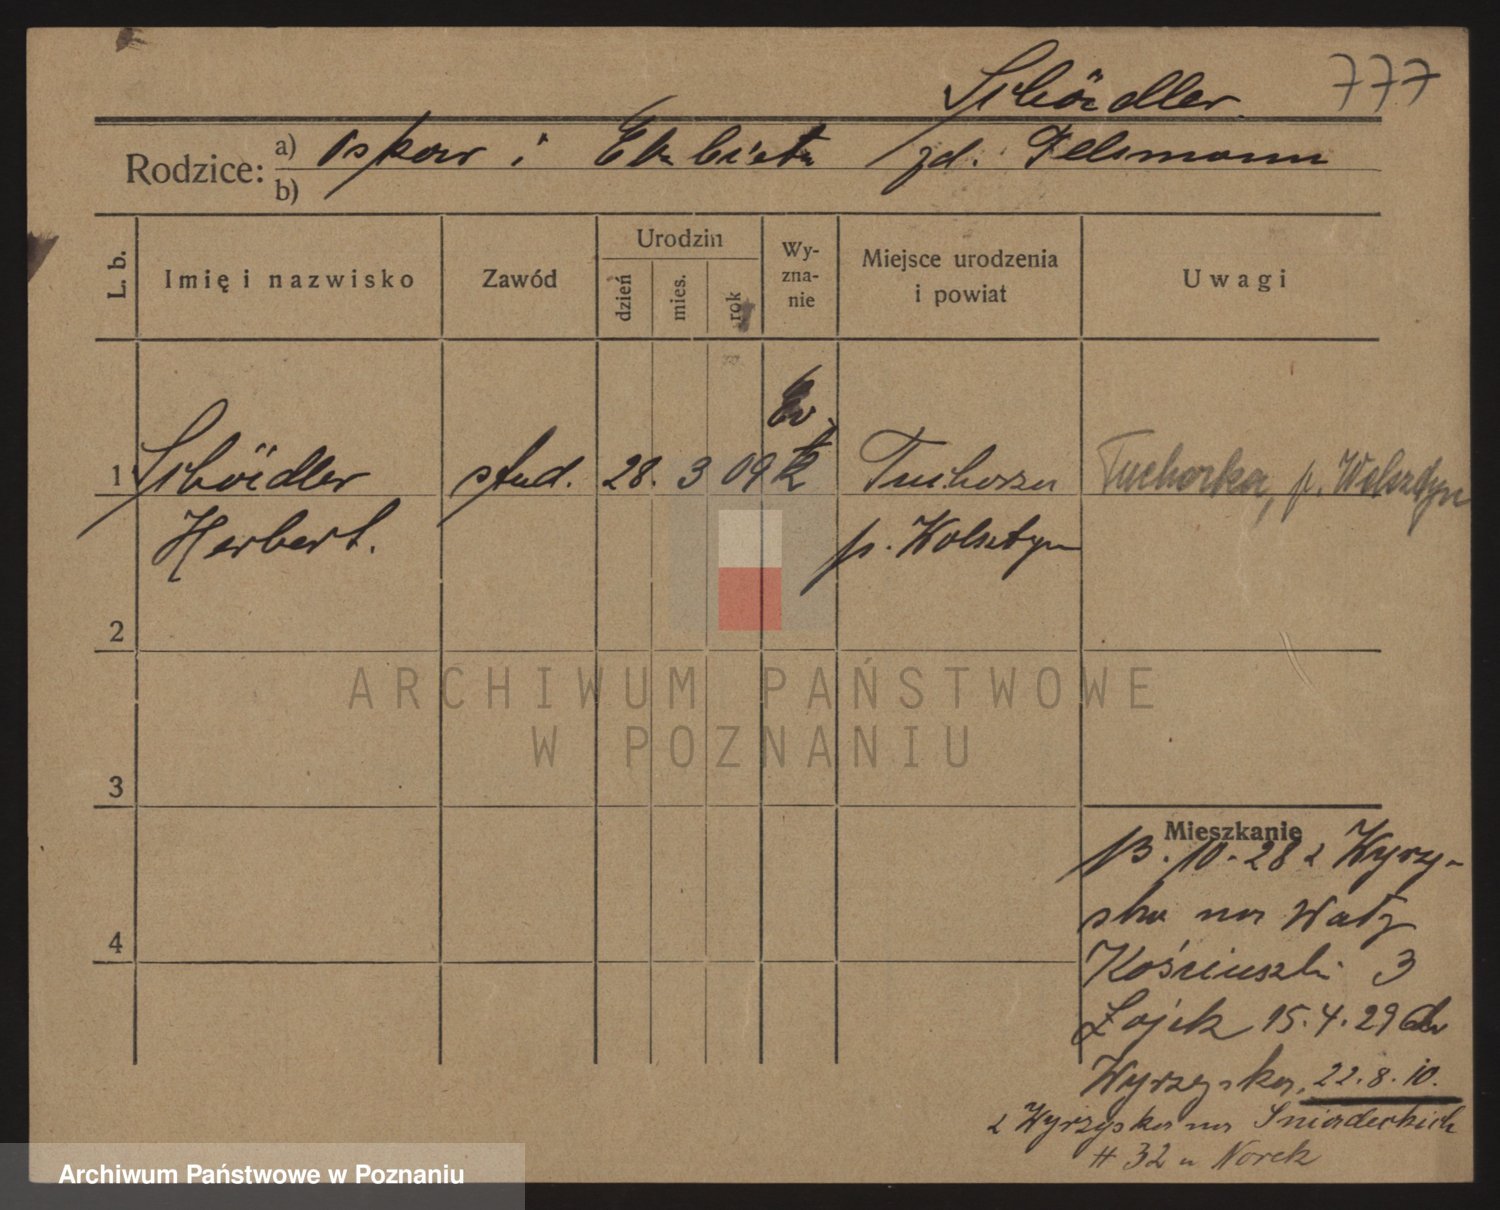 Schöidler 777
Rodzice: a) Oskar i Elzbieta zd. Felsmann
b)
L. b. Imię i nazwisko Zawód Urodzin dzień mies. rok Wyznanie Miejsce urodzenia i powiat Uwagi
Ev
1 Schöidler stud. 28. 3 09 k Tuchorza Tuchorka, p. Wolsztyn
Herbert. p. Wolsztyn
2
3
4
Mieszkanie
10-28 z Wyrzy-
ska na Wały
Kościuszki 3
15.4.29 do
Wyrzyska, 22.8.
z Wyrzyska na Sniadeckich
# 32 u Norek
ARCHIWUM PAŃSTWOWE
W POZNANIU
Archiwum Państwowe w Poznaniu